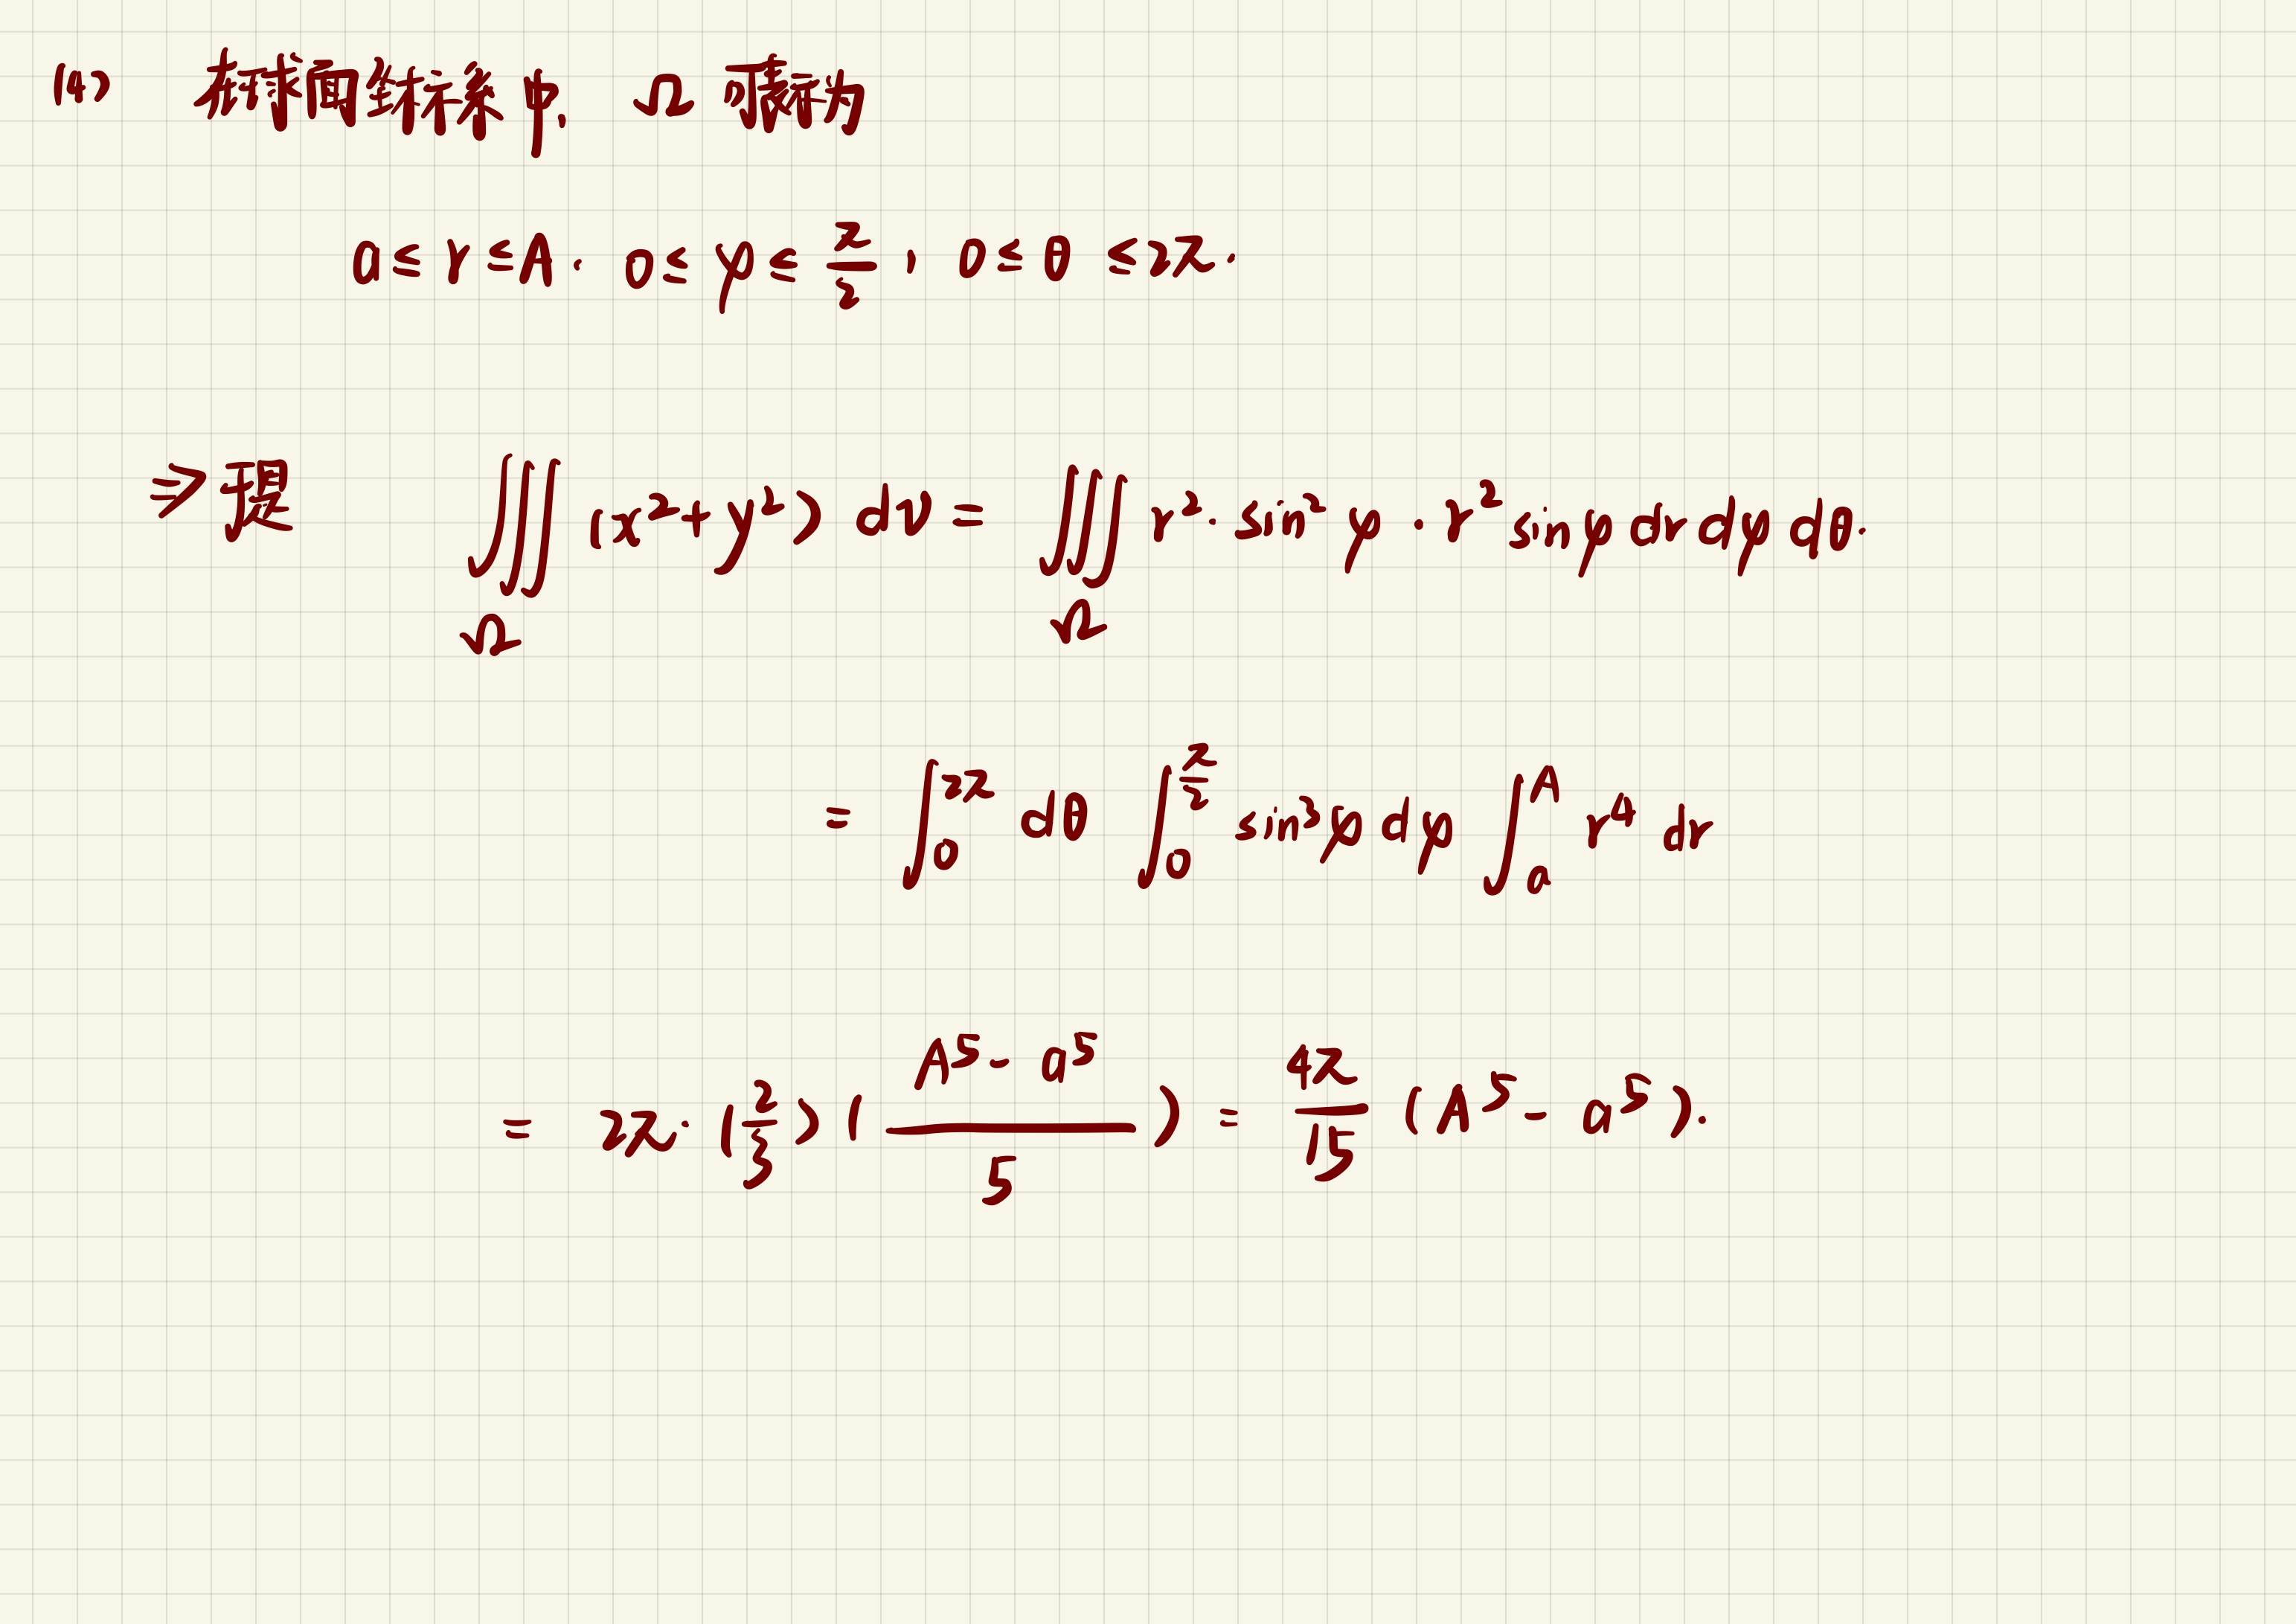 (4) 在球面坐标系中, Ω 可表示为
a ≤ r ≤ A. 0 ≤ φ ≤ π/2, 0 ≤ θ ≤ 2π.
⇒ ∭_Ω (x²+y²) dv = ∭_Ω r²·sin²φ·r² sinφ dr dφ dθ.
= ∫₀^{2π} dθ ∫₀^{π/2} sin³φ dφ ∫ₐ^A r⁴ dr
= 2π·(2/3)((A⁵-a⁵)/5) = 4π/15 (A⁵-a⁵).